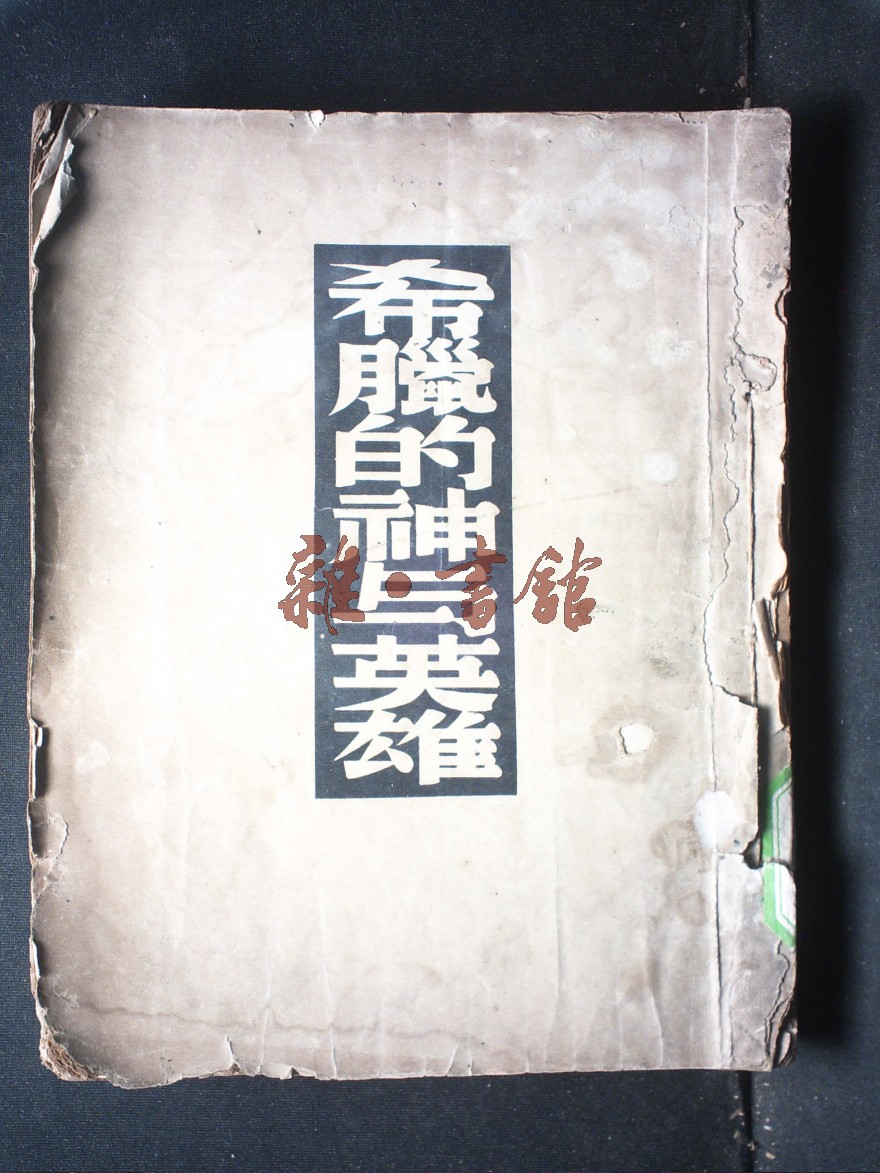 希臘的神与英雄
雜·書館